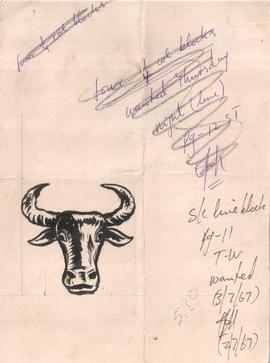 four ¼ col blocks
four ¼ col blocks
wanted Thursday
night (line)
Pg-12 ST
S/c line block
Pg-11
T.W.
wanted
(3/7/67)
(2/7/67)
5.30